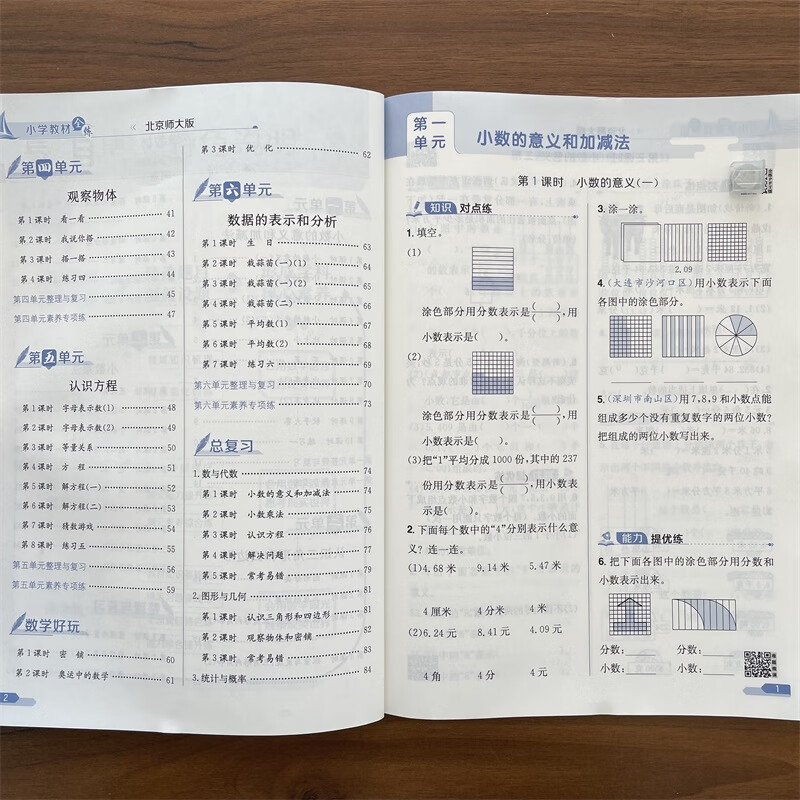 小学教材全练
北京师大版
第四单元
观察物体
第1课时 看一看 41
第2课时 我说你搭 42
第3课时 搭一搭 43
第4课时 练习四 44
第四单元整理与复习 45
第四单元素养专项练 47
第五单元
认识方程
第1课时 字母表示数(1) 48
第2课时 字母表示数(2) 49
第3课时 等量关系 50
第4课时 方 程 51
第5课时 解方程(一) 52
第6课时 解方程(二) 53
第7课时 猜数游戏 54
第8课时 练习五 55
第五单元整理与复习 56
第五单元素养专项练 59
数学好玩
第1课时 密 铺 60
第2课时 奥运中的数学 61
2
第3课时 优 化 62
第六单元
数据的表示和分析
第1课时 生 日 63
第2课时 栽蒜苗(一)(1) 64
第3课时 栽蒜苗(一)(2) 65
第4课时 栽蒜苗(二) 66
第5课时 平均数(1) 67
第6课时 平均数(2) 68
第7课时 练习六 69
第六单元整理与复习 70
第六单元素养专项练 73
总复习
1.数与代数 74
第1课时 小数的意义和加减法 74
第2课时 小数乘法 75
第3课时 认识方程 76
第4课时 解决问题 77
第5课时 常考易错 79
2.图形与几何 81
第1课时 认识三角形和四边形 81
第2课时 观察物体和密铺 82
第3课时 常考易错 83
3.统计与概率 84
第一单元
小数的意义和加减法
第1课时 小数的意义(一)
知识 对点练
1.填空。
(1)
涂色部分用分数表示是( ),用
小数表示是( )。
(2)
涂色部分用分数表示是( ),用
小数表示是( )。
(3)把“1”平均分成1000份,其中的237
份用分数表示是( ),用小数表
示是( )。
2.下面每个数中的“4”分别表示什么意
义?连一连。
(1)4.68米 9.14米 5.47米
4厘米 4分米 4米
(2)6.24元 8.41元 4.09元
4角 4分 4元
3.涂一涂。
2.09
4.(大连市沙河口区)用小数表示下面
各图中的涂色部分。
5.(深圳市南山区)用7,8,9和小数点能
组成多少个没有重复数字的两位小数?
把组成的两位小数写出来。
能力 提优练
6.把下面各图中的涂色部分用分数和
小数表示出来。
分数: 分数:
小数: 小数:
1